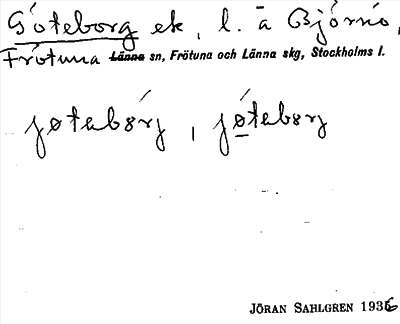 Göteborg ek, l. å Björnö,
Frötuna Länna sn, Frötuna och Länna skg, Stockholms l.
jøtebórj, jǿtebɷrj
JÖRAN SAHLGREN 1936